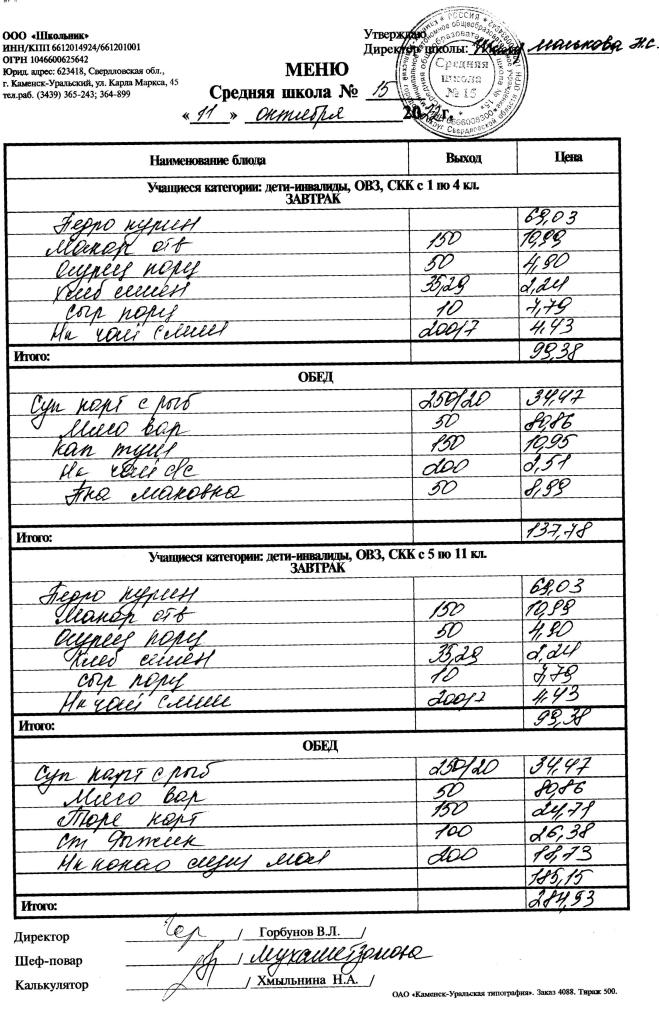 ООО «Школьник»
ИНН/КПП 6612014924/661201001
ОГРН 1046600625642
Юрид. адрес: 623418, Свердловская обл.,
г. Каменск-Уральский, ул. Карла Маркса, 45
тел.раб. (3439) 365-243; 364-899
Утверждаю
Директор школы: Малькова Н.С.
Средняя школа № 15
МЕНЮ
Средняя школа № 15
« 11 » октября 20 г.
Наименование блюда Выход Цена
Учащиеся категории: дети-инвалиды, ОВЗ, СКК с 1 по 4 кл.
ЗАВТРАК
Бедро курин 69,03
Макар отв 150 10,99
Огурец порц 50 4,90
Хлеб семен 35,29 2,24
сыр порц 10 7,79
Нк чай с лим 200/7 4,43
Итого: 99,38
ОБЕД
Суп карт с рыб 250/20 34,47
Мясо вар 50 80,86
кап туш 150 10,95
Нк чай с/с 200 2,51
Пна маковка 50 8,99
Итого: 137,78
Учащиеся категории: дети-инвалиды, ОВЗ, СКК с 5 по 11 кл.
ЗАВТРАК
Бедро курин 69,03
Макар отв 150 10,99
Огурец порц 50 4,90
Хлеб семен 35,29 2,24
сыр порц 10 7,79
Нк чай с лим 200/7 4,43
Итого: 99,38
ОБЕД
Суп карт с рыб 250/20 34,47
Мясо вар 50 80,86
Пюре карт 150 24,71
100 26,38
Нк какао мол 200 18,73
185,15
Итого: 284,53
Директор / Горбунов В.Л. /
Шеф-повар / Мухаметзянова
Калькулятор / Хмыльнина Н.А. /
ОАО «Каменск-Уральская типография». Заказ 4088. Тираж 500.